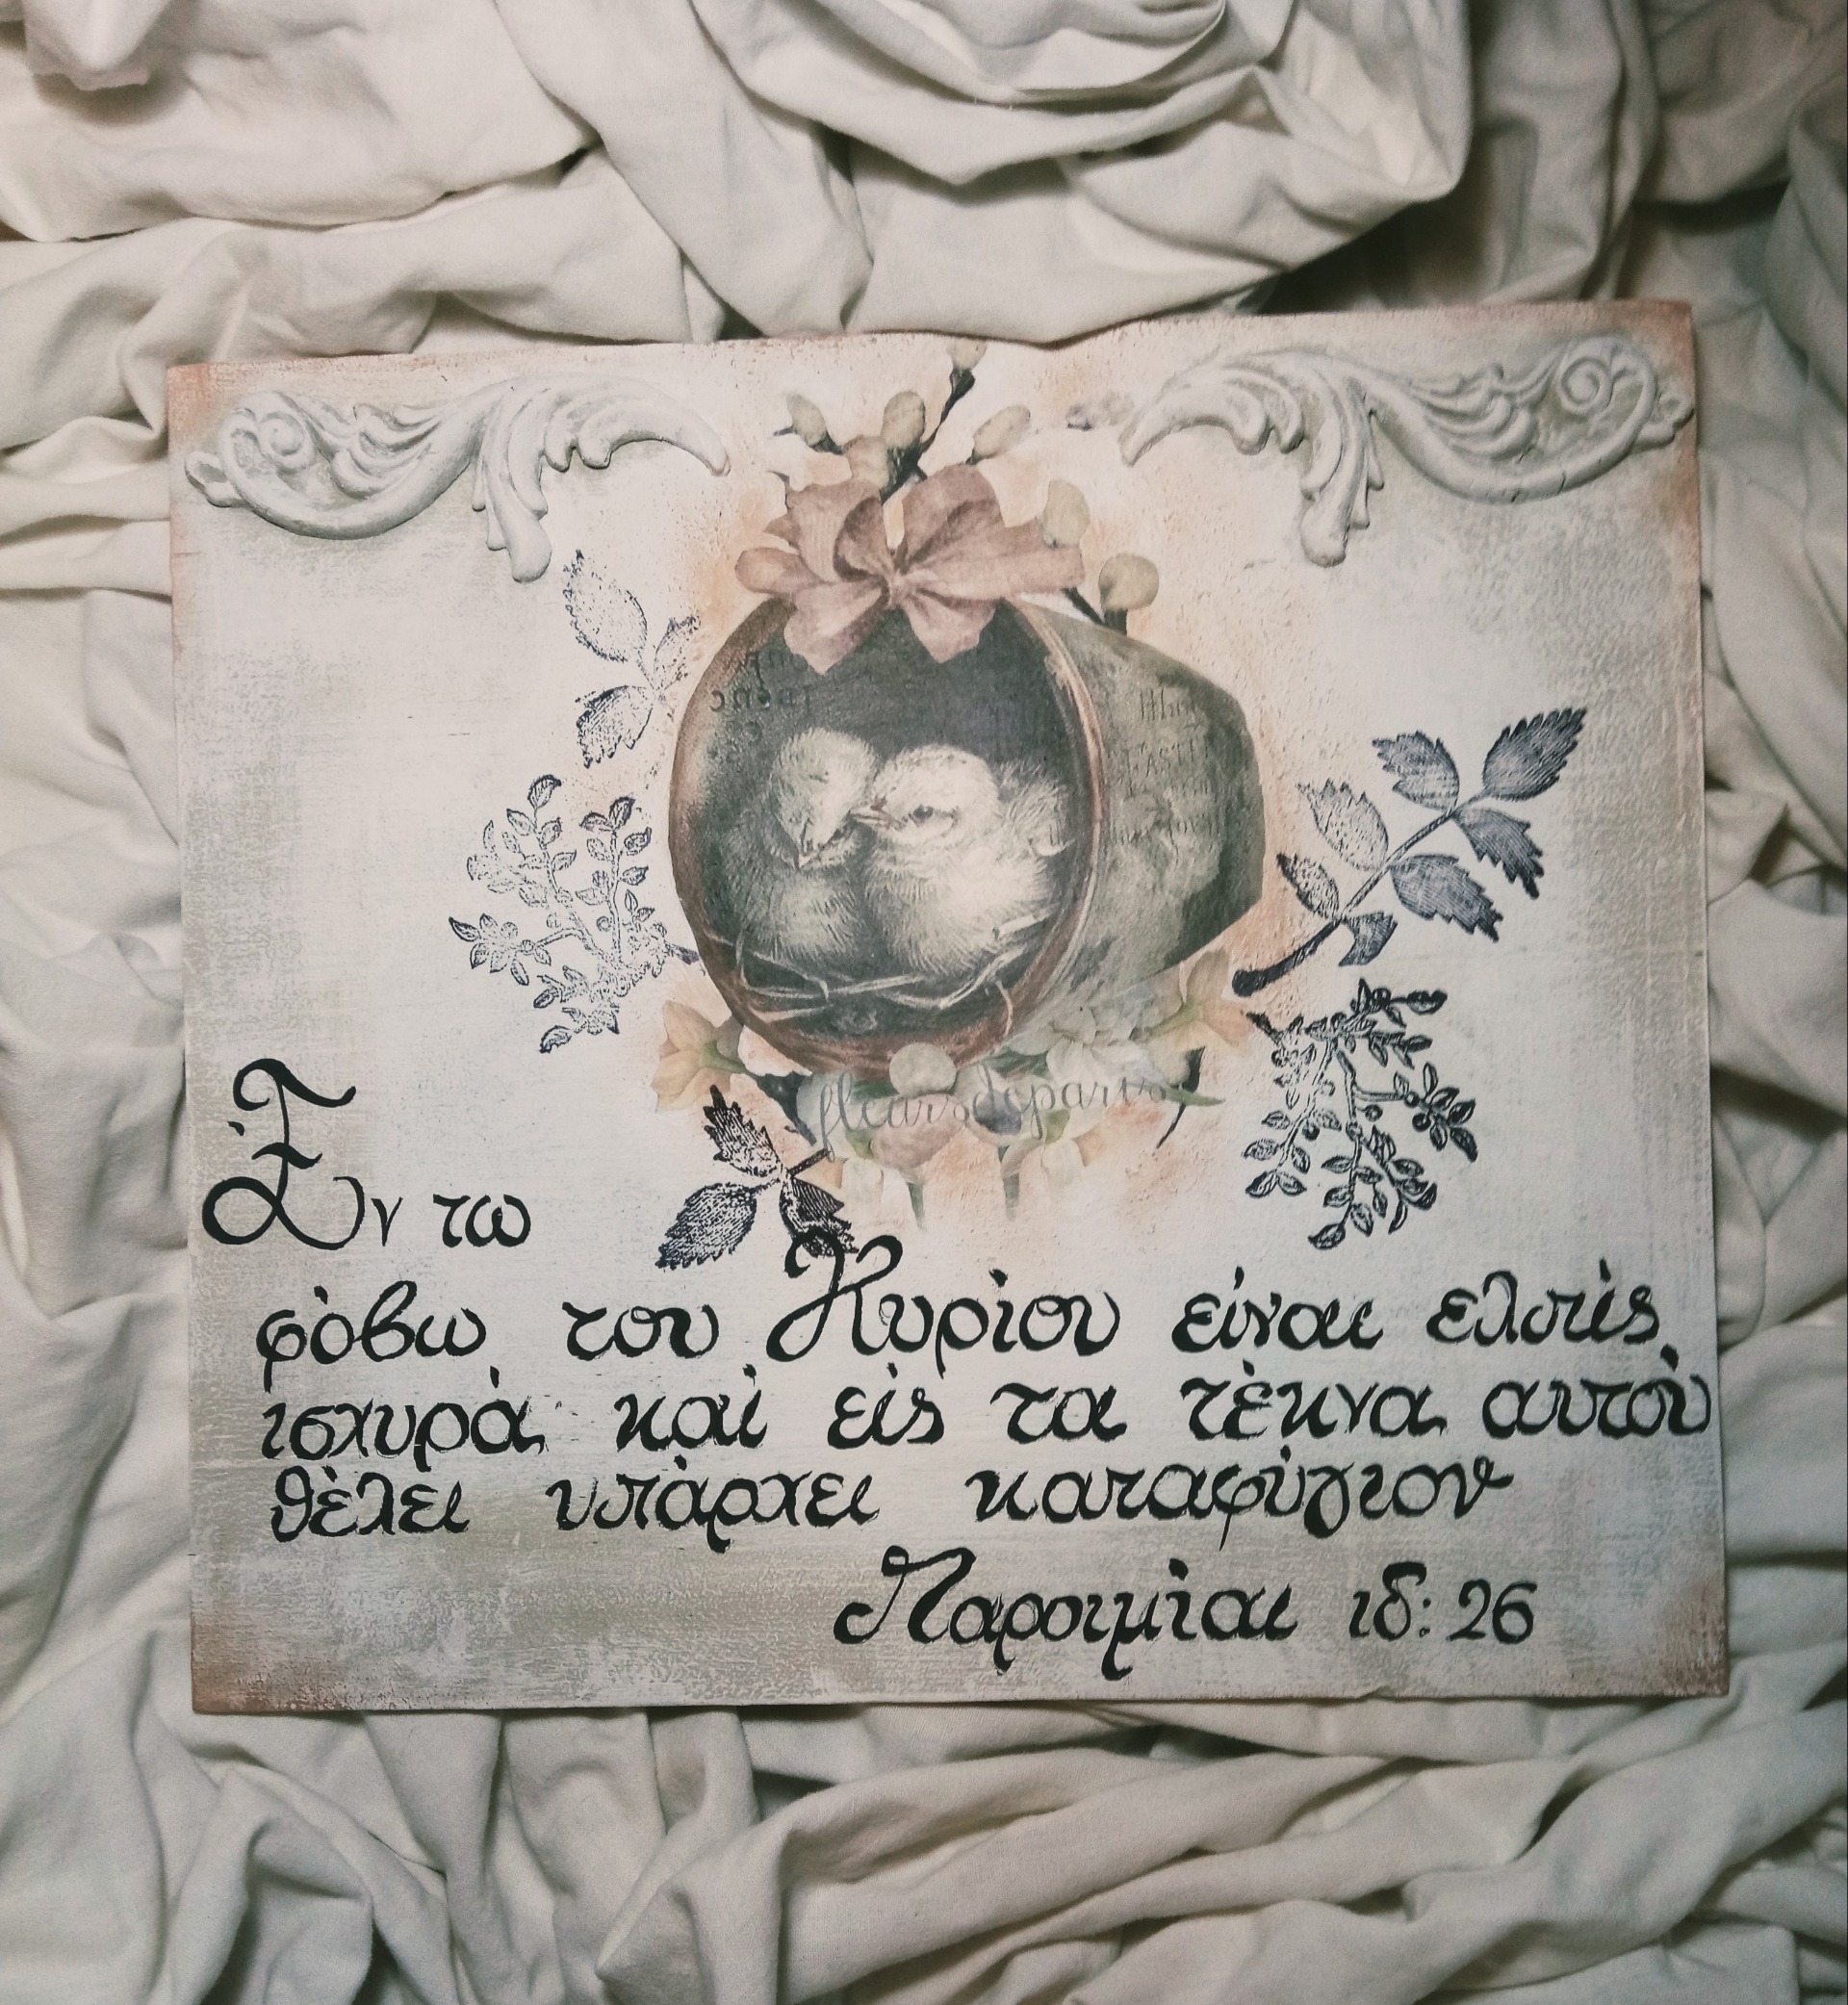 fleursdeparis
Εν τω
φόβω του Κυρίου είναι ελπίς
ισχυρά καί είς τα τέκνα αυτού
θέλει υπάρχει καταφύγιον
Παροιμίαι ιδ: 26